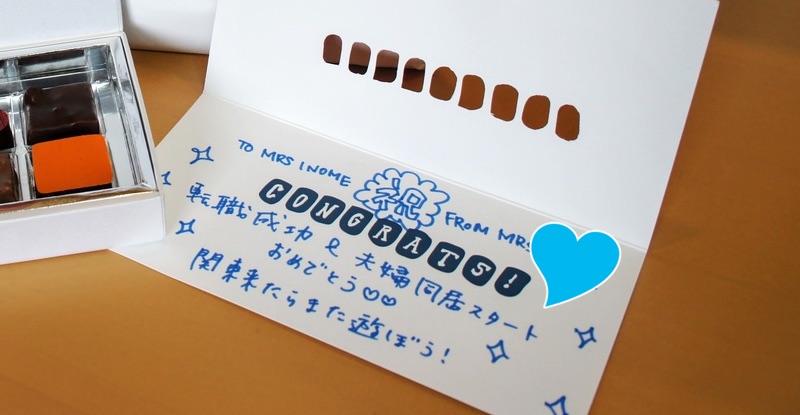 TO MRS INOME
祝
FROM MRS
CONGRATS!
転職成功 & 夫婦同居スタート
おめでとう♡♡
関東来たらまた遊ぼう!